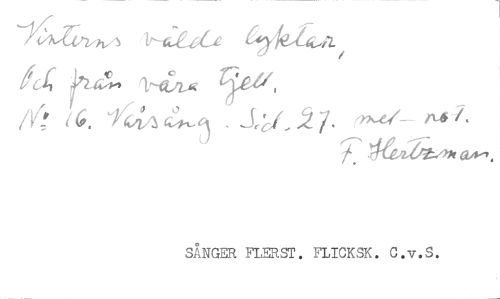 Vinterns välde lyktar,
Och från våra tjell.
No 16. Vårsång. Sid. 27. mel-not.
F. Hertzman.
SÅNGER FLERST. FLICKSK. C.v.S.